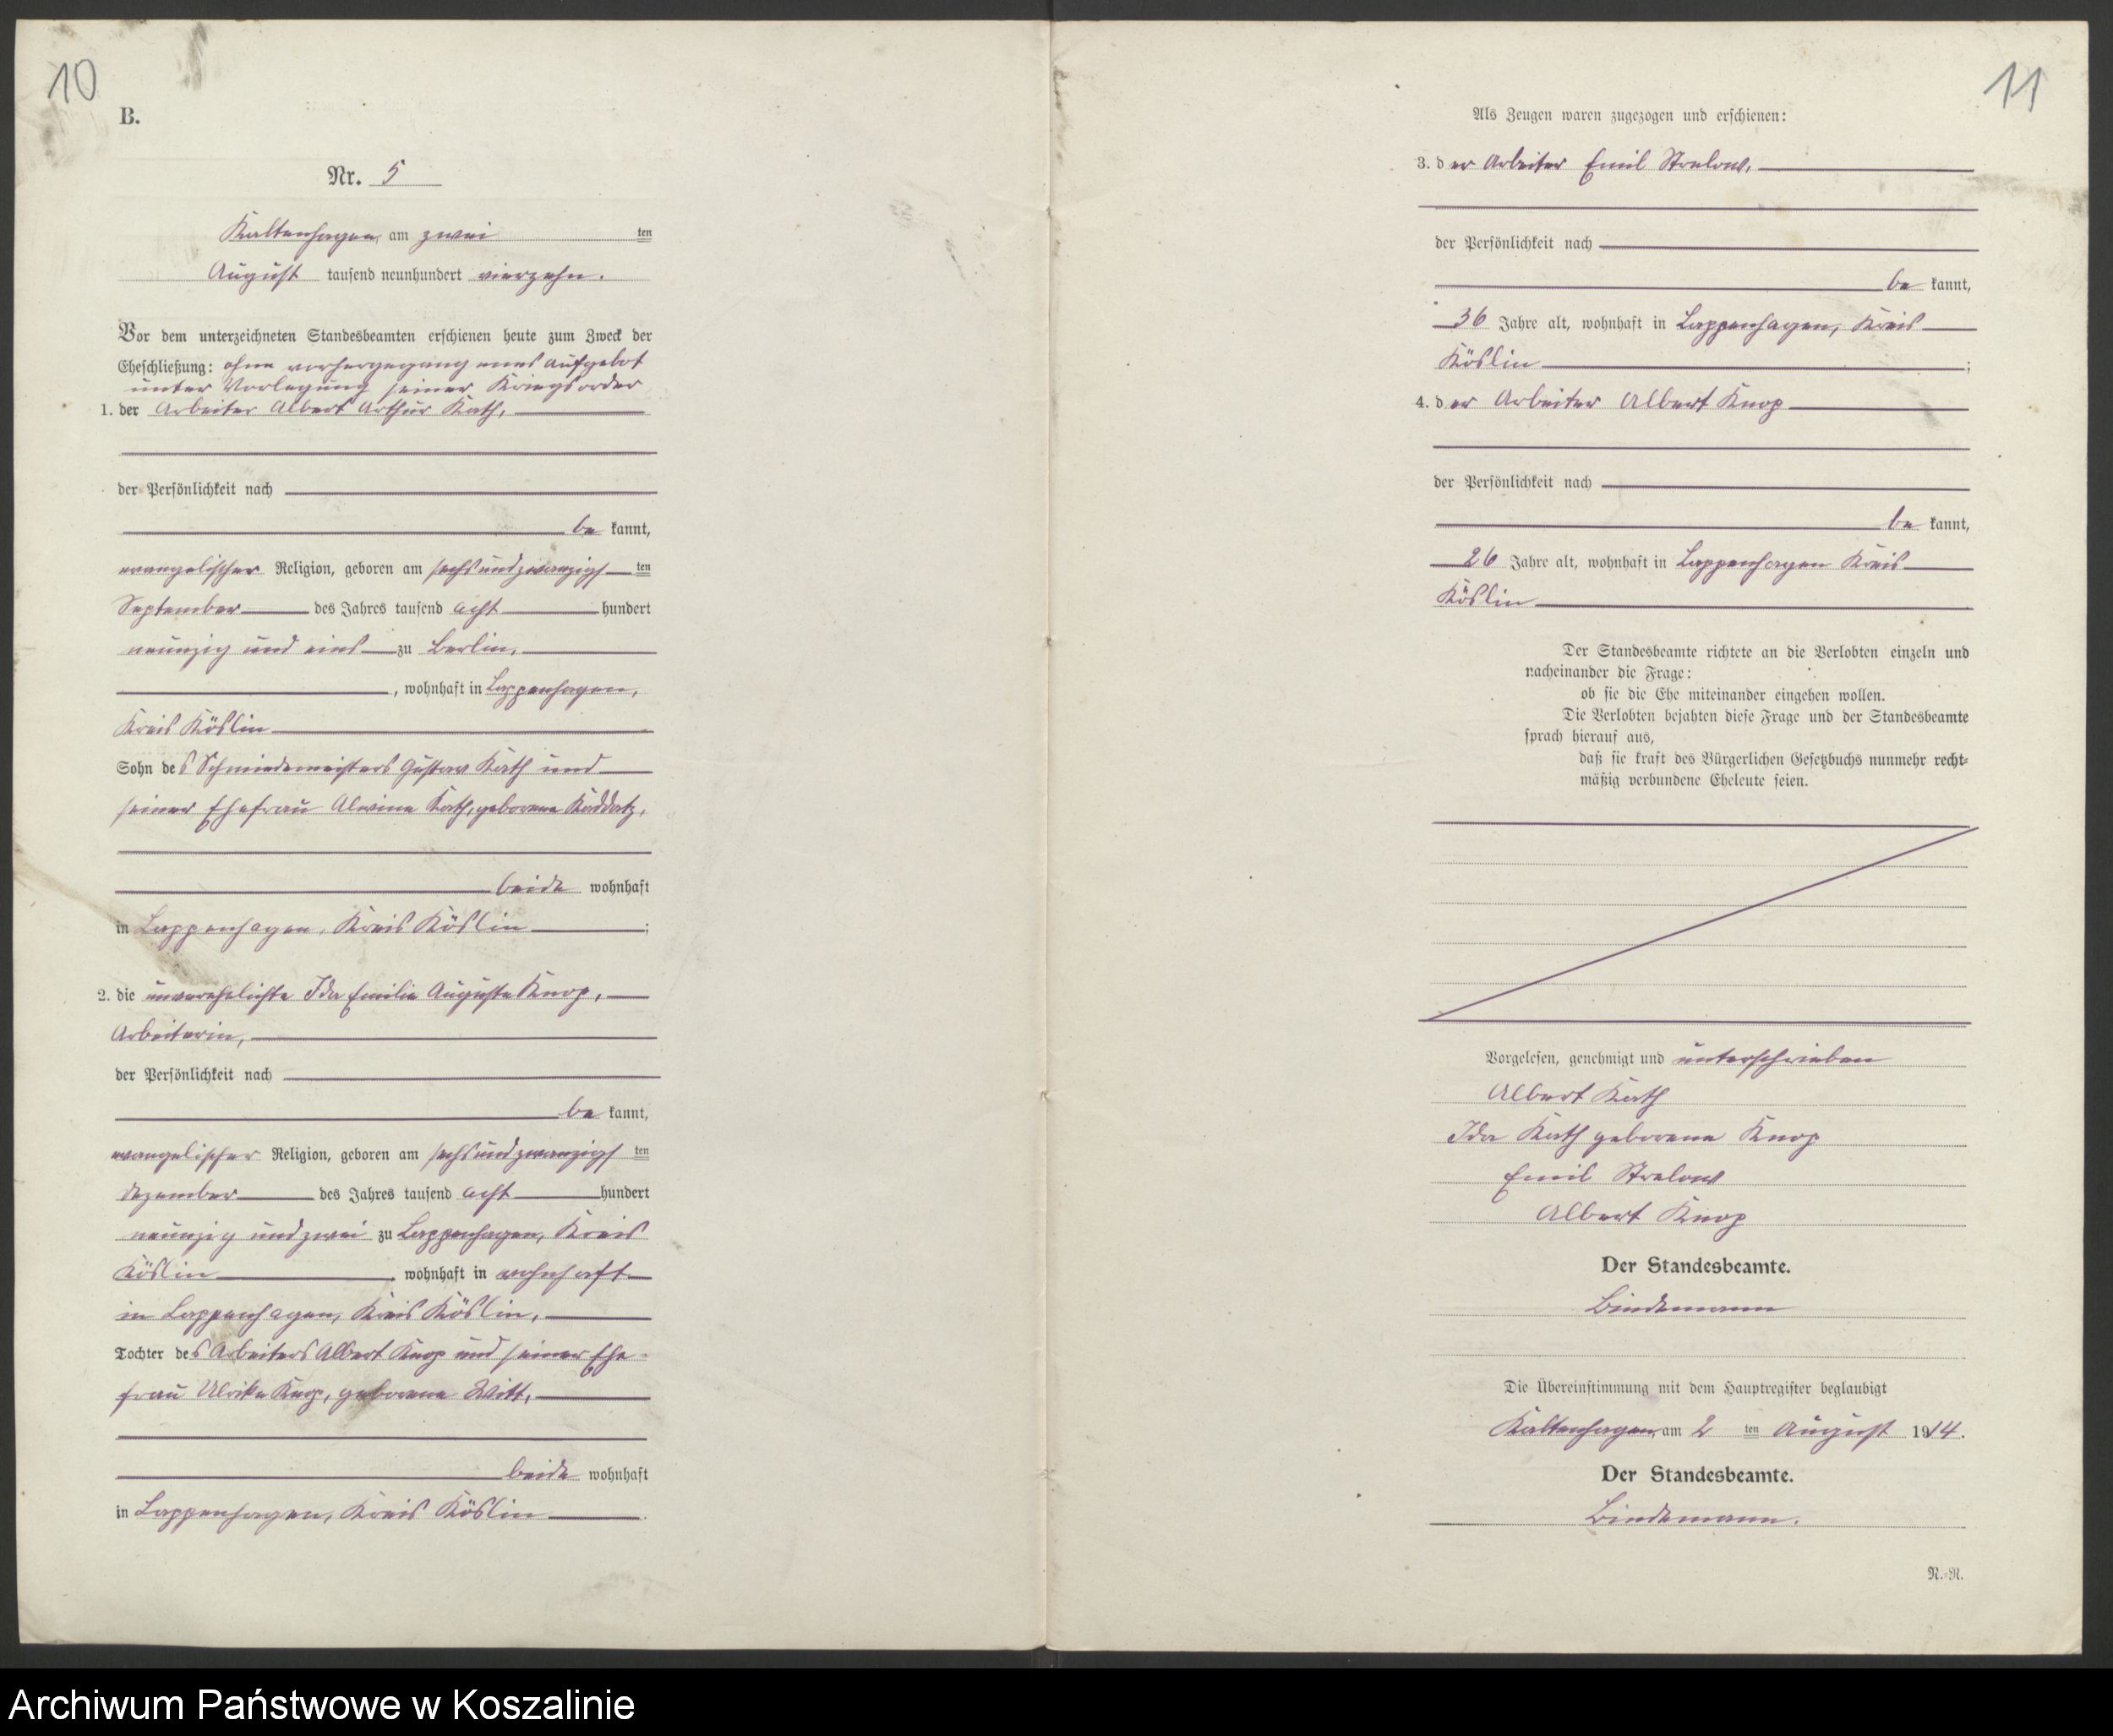 10
B.
Nr. 5
Kaltenhagen, am zwei ten
August tausend neunhundert vierzehn.
Vor dem unterzeichneten Standesbeamten erschienen heute zum Zweck der
Eheschließung: ohne vorhergegangenes Aufgebot
unter Vorlegung seiner Kriegsorder
1. der Arbeiter Albert Arthur Kath,
der Persönlichkeit nach
be kannt,
evangelischer Religion, geboren am sechsundzwanzigs ten
September des Jahres tausend acht hundert
neunzig und eins zu Berlin,
, wohnhaft in Lappenhagen,
Kreis Köslin
Sohn des Schmiedemeisters Gustav Kath und
seiner Ehefrau Alwine Kath, geborene Raddatz,
beide wohnhaft
in Lappenhagen, Kreis Köslin ;
2. die unverehelichte Ida Emilie Auguste Knop,
Arbeiterin,
der Persönlichkeit nach
be kannt,
evangelischer Religion, geboren am sechsundzwanzigs ten
Dezember des Jahres tausend acht hundert
neunzig und zwei zu Lappenhagen, Kreis
Köslin , wohnhaft in wohnhaft
in Lappenhagen, Kreis Köslin,
Tochter des Arbeiters Albert Knop und seiner Ehe-
frau Ulrike Knop, geborene Witt,
beide wohnhaft
in Lappenhagen, Kreis Köslin .
11
Als Zeugen waren zugezogen und erschienen:
3. der Arbeiter Emil Strelow,
der Persönlichkeit nach
be kannt,
36 Jahre alt, wohnhaft in Lappenhagen, Kreis
Köslin ;
4. der Arbeiter Albert Knop
der Persönlichkeit nach
be kannt,
26 Jahre alt, wohnhaft in Lappenhagen Kreis
Köslin
Der Standesbeamte richtete an die Verlobten einzeln und
nacheinander die Frage:
ob sie die Ehe miteinander eingehen wollen.
Die Verlobten bejahten diese Frage und der Standesbeamte
sprach hierauf aus,
daß sie kraft des Bürgerlichen Gesetzbuchs nunmehr recht-
mäßig verbundene Eheleute seien.
Vorgelesen, genehmigt und unterschrieben
Albert Kath
Ida Kath geborene Knop
Emil Strelow
Albert Knop
Der Standesbeamte.
Lindemann
Die Übereinstimmung mit dem Hauptregister beglaubigt
Kaltenhagen, am 2 ten August 1914.
Der Standesbeamte.
Lindemann.
N.-R.
Archiwum Państwowe w Koszalinie